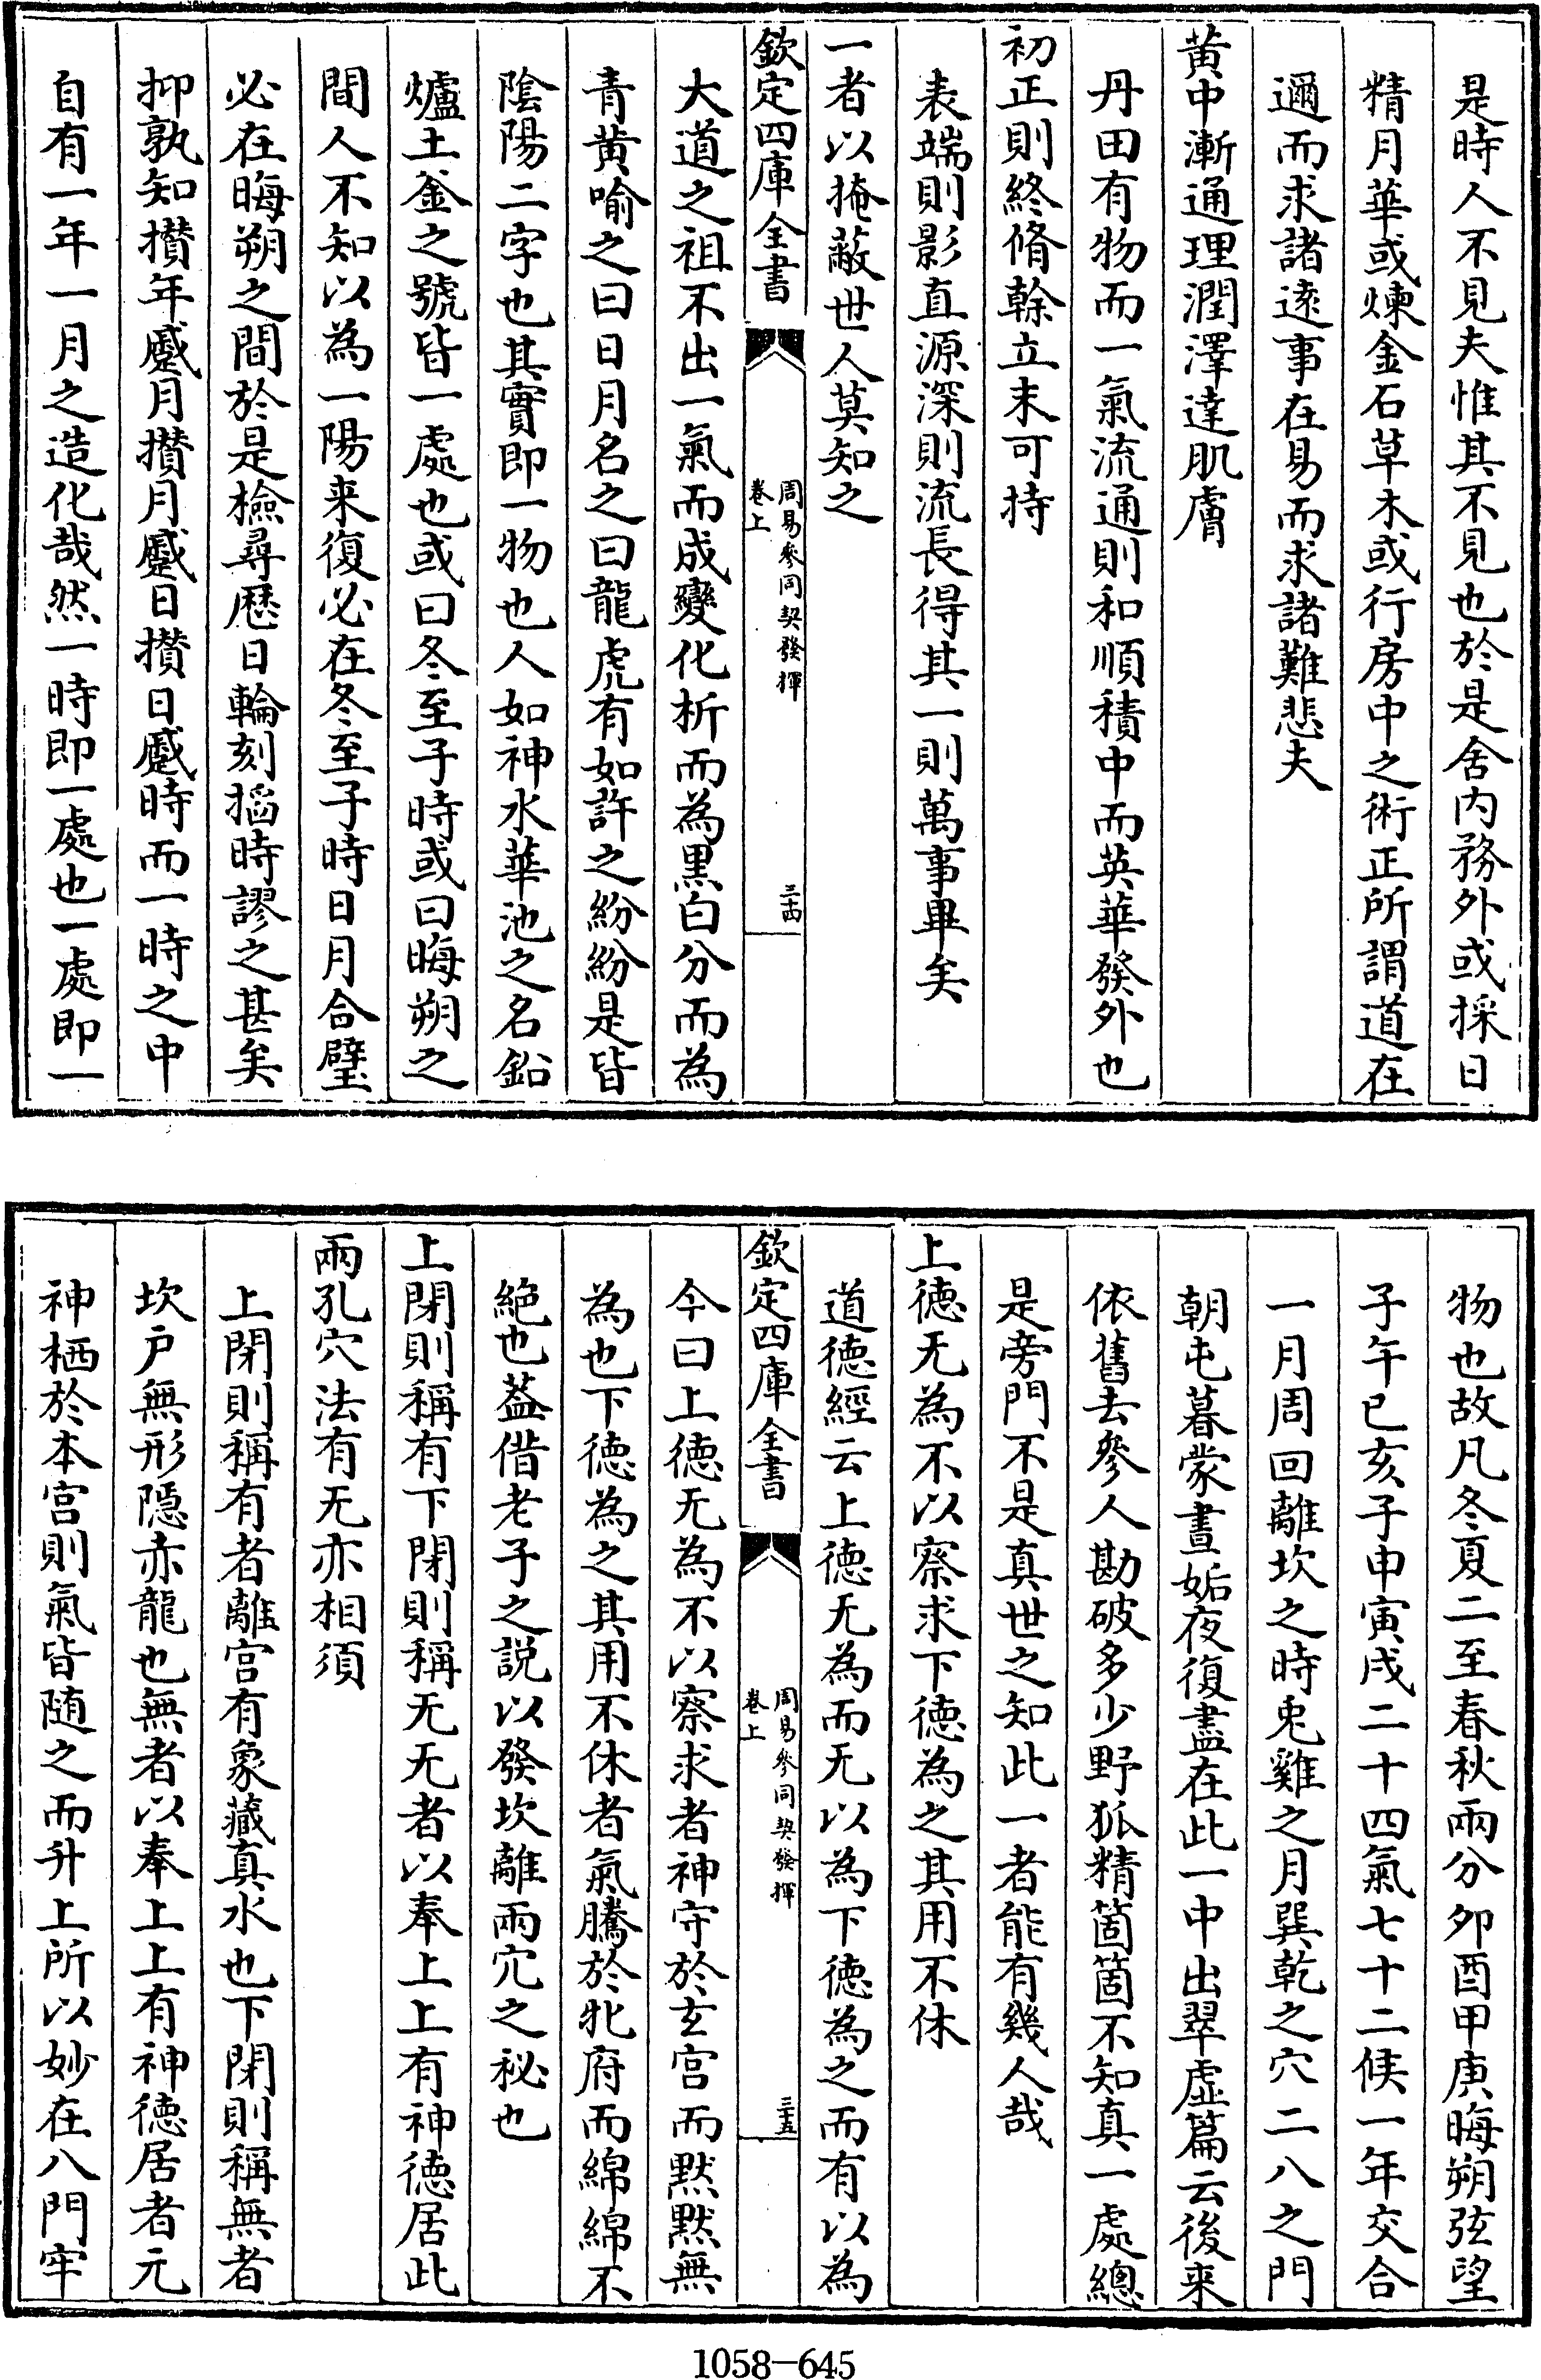 是時人不見夫惟其不見也於是舍内務外或採日
精月華或煉金石草木或行房中之術正所謂道在
邇而求諸逺事在易而求諸難悲夫
黄中漸通理潤澤達肌膚
丹田有物而一氣流通則和順積中而英華發外也
初正則終脩幹立末可持
表端則影直源深則流長得其一則萬事畢矣
一者以掩蔽世人莫知之
欽定四庫全書
周易參同契發揮
卷上
三十四
大道之祖不出一氣而成變化析而為黒白分而為
青黄喻之曰日月名之曰龍虎有如許之紛紛是皆
陰陽二字也其實即一物也人如神水華池之名鉛
爐土釜之號皆一處也或曰冬至子時或曰晦朔之
間人不知以為一陽来復必在冬至子時日月合璧
必在晦朔之間於是檢尋厯日輪刻掐時謬之甚矣
抑孰知攅年蹙月攅月蹙日攅日蹙時而一時之中
自有一年一月之造化哉然一時即一處也一處即一
物也故凡冬夏二至春秋兩分夘酉甲庚晦朔弦望
子午已亥子申寅戌二十四氣七十二候一年交合
一月周回離坎之時兎雞之月巽乾之穴二八之門
朝屯暮蒙晝姤夜復盡在此一中出翠虚篇云後来
依舊去參人勘破多少野狐精箇箇不知真一處總
是旁門不是真世之知此一者能有幾人哉
上徳无為不以察求下徳為之其用不休
道徳經云上徳无為而无以為下徳為之而有以為
欽定四庫全書
周易參同契發揮
卷上
三十五
今曰上徳无為不以察求者神守於玄宫而黙黙無
為也下徳為之其用不休者氣騰於牝府而綿綿不
絶也葢借老子之説以發坎離兩穴之秘也
上閉則稱有下閉則稱无无者以奉上上有神徳居此
兩孔穴法有无亦相須
上閉則稱有者離宫有象藏真水也下閉則稱無者
坎户無形隠赤龍也無者以奉上上有神徳居者元
神栖於本宫則氣皆随之而升上所以妙在八門牢
1058-645